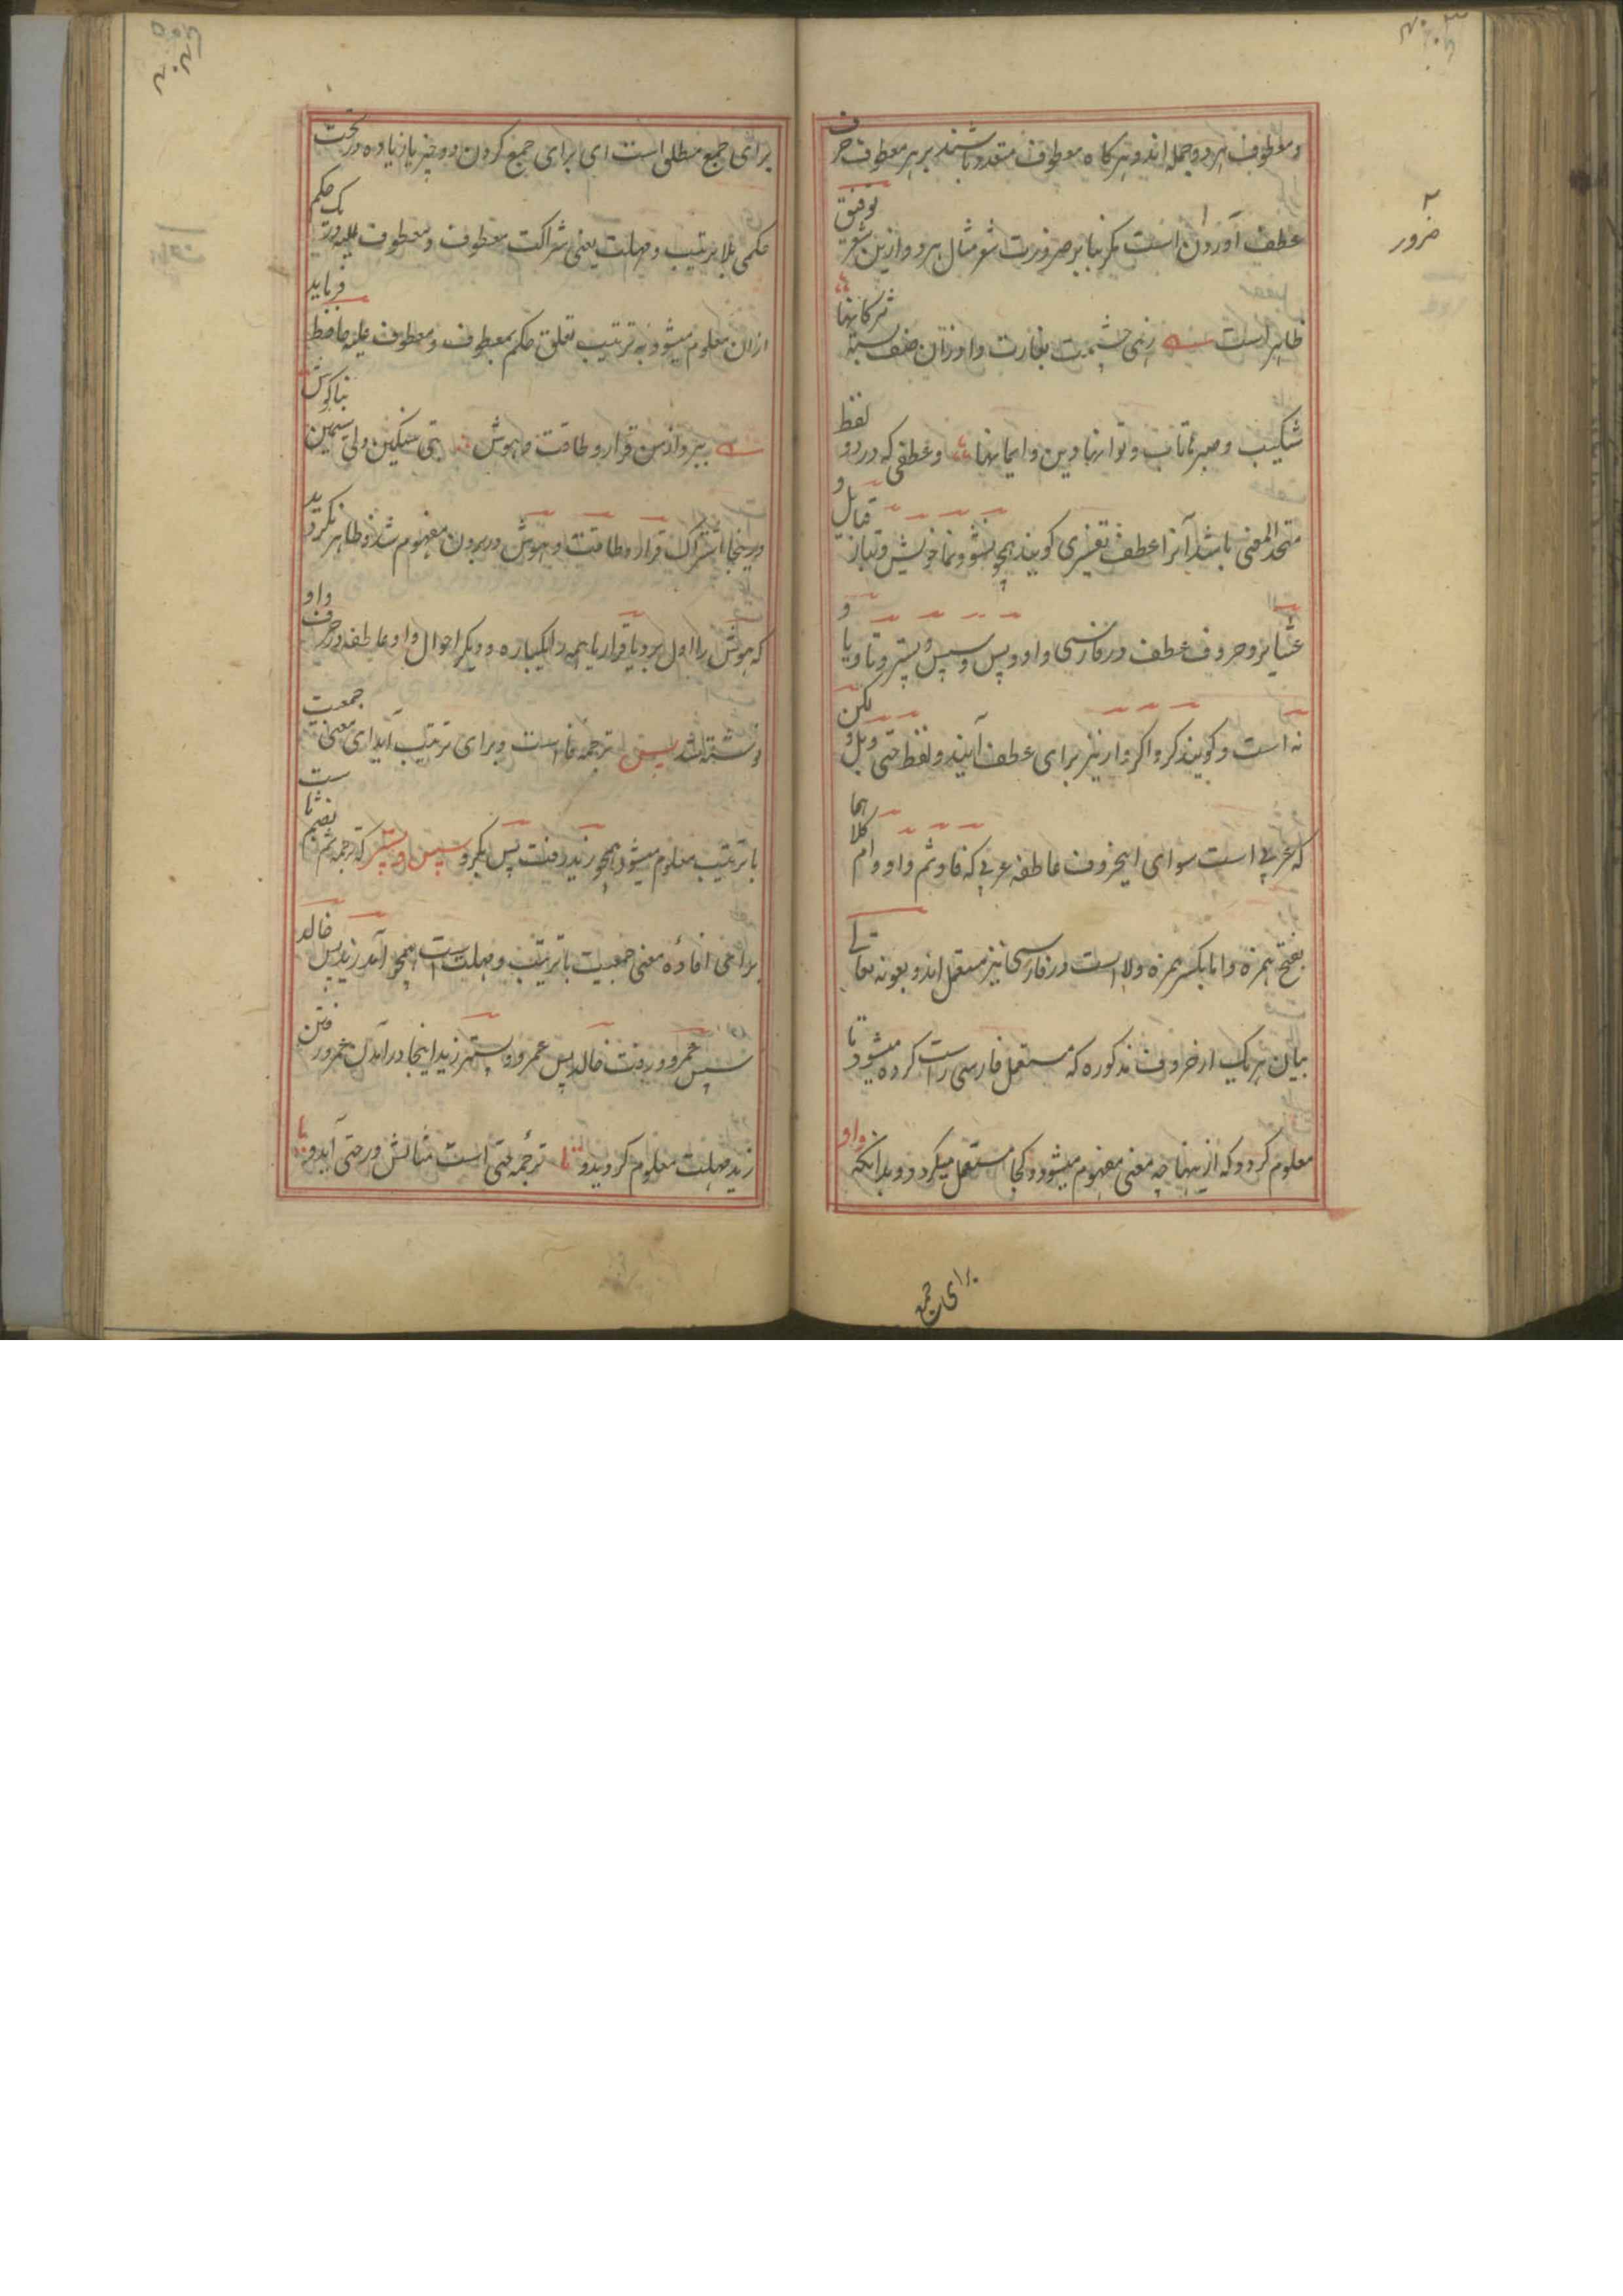 و معطوف هر دو جمله اند و هر کاه معطوف متعدد باشند بر هر معطوف حرف
عطف آوردن است مکر بنا بر ضرورت شعر مثال هر دو ازین شعر توفیق
ظاهر است زهی چشمت بغارت داد زان صف بسته ترکانها
شکیب و صبر تاب و توانها دین و ایمانها و عطفی که در دو لفظ
متحد المعنی باشد آنرا عطف تفسیری کویند همچو نشو و نما و خویش و تبار و قبایل و
عشایر و حروف عطف در فارسی واو و پس و سپس و پستر و تا و یا و
نه است و کویند کر و اکر و ار نیز برای عطف آیند و لفظ حتی و بل و لکن
که عربی است سوای اینحروف عاطفه عربی که فا و ثم و او و ام کلا هما
بفتح همزه و اما بکسر همزه و لا است در فارسی نیز مستعمل اند و بعونه تعالی
بیان هر یک از حروف مذکوره که مستعمل فارسی است کرده میشود تا
معلوم کردد که ازینها چه معنی مفهوم میشود و کجا مستعمل میکردد و بدانکه واو
برای جمع
۲
ضرور
برای جمع مطلق است ای برای جمع کردن دو چیز یا زیاده در تحت
حکمی بلا ترتیب و مهلت یعنی شراکت معطوف و معطوف علیه در یک حکم
ازان معلوم میشود نه ترتیب تعلق حکم بمعطوف و معطوف علیه حافظ فرماید
ببرد از من قرار و طاقت و هوش بتی سنکین دلی سیمین بناکوش
درینجا اشتراک قرار و طاقت و هوش در بردن مفهوم شد و ظاهر نکردید
که هوش را اول برد یا قرار یا همه را یکباره و دیکر احوال واو عاطفه در حرف واو
نوشته شد پس ترجمه فا است و برای ترتیب آید ای معنی جمعیت
با ترتیب معلوم میشود همچو زید رفت پس بکر و سپس و پستر که ترجمه ثم بضم ثا ست
برای افادهٔ معنی جمعیت با ترتیب و مهلت است همچو آمد زید پس خالد
سپس عمرو و رفت خالد پس عمرو و پستر زید اینجا در آمدن عمرو و رفتن
زید مهلت معلوم کردید و تا ترجمهٔ حتی است مثالش در حتی آید و یا